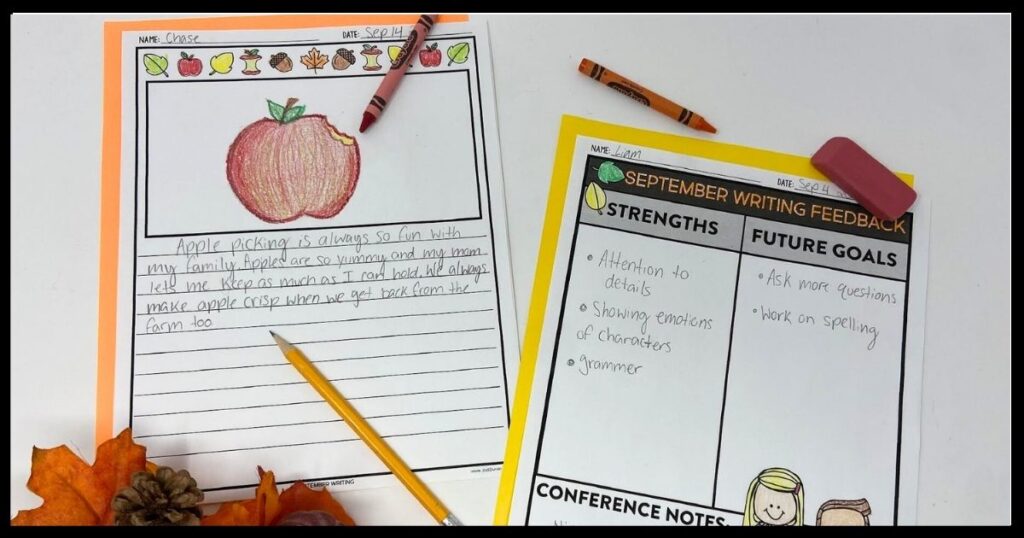 NAME: Chase DATE: Sep 14
Apple picking is always so fun with
my family. Apples are so yummy and my mom
lets me keep as much as I can hold. We always
make apple crisp when we get back from the
farm too
SEPTEMBER WRITING
NAME: Liam
DATE: Sep 4
SEPTEMBER WRITING FEEDBACK
STRENGTHS
• Attention to
details
• Showing emotions
of characters
• grammer
FUTURE GOALS
• Ask more questions
• Work on spelling
CONFERENCE NOTES: